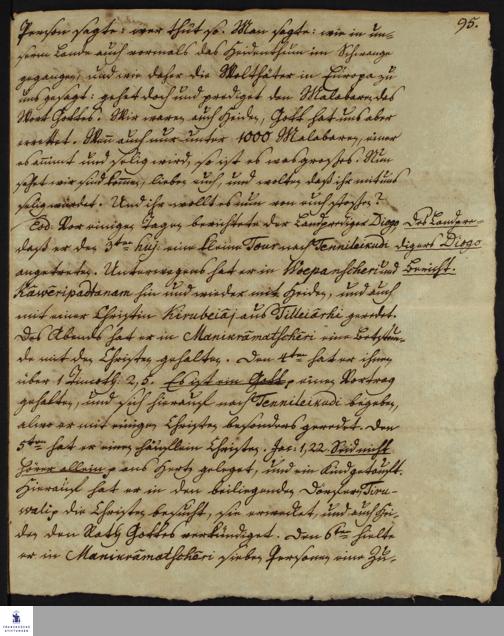 95.
Person sagte: wer thut so. Man sagte: wie in un-
serm Lande auch vormals das Heidenthum im Schwange
gegangen, und wie daher die Wolthäter in Europa zu
uns gesagt: gehet doch und prediget den Malabaren das
Wort Gottes. Wir waren auch Heiden, Gott hat uns aber
errettet. Wenn auch nur unter 1000 Malabaren, einer
es annimt und selig wird, so ist es was grosses. Nun
sehet wir sind kommen, lieben euch, und wolten daß ihr mit uns
selig würdet. Und ihr wollt es nun von euch stossen?
Eod. Vor einigen Tagen berichtete der Landprediger Diogo
daß er den 3ten huj. eine kleine Tour nach Tennileikudi
angetreten. Unterwegens hat er in Woepanscheri und
Kaweripadtanam hin und wieder mit Heiden, und auch
mit einer Christin Kirubei aus Tilleiarhi geredet.
Des Abends hat er in Manikramathscheri eine Betstun-
de mit den Christen gehalten. Den 4ten hat er ihnen
über 1 Timoth. 2, 5. Es ist ein Gott p einen Vortrag
gehalten, und sich hierauf nach Tennileikudi begeben,
alwo er mit einigen Christen besonders geredet. Den
5ten hat er einem Häuflein Christen Jac. 1, 22. Seid nicht
Hörer allein p ans Hertz geleget, und ein Kind getauft.
Hierauf hat er in den beiliegenden Dörfern Tiru-
walip die Christen besucht, sie erwecket, und auch Hei-
den den Rath Gottes verkündiget. Den 6ten hielte
er in Manikramathscheri sieben Personen eine Zu-
Des Landpre-
digers Diogo
Bericht.
FRANCKESCHE
STIFTUNGEN